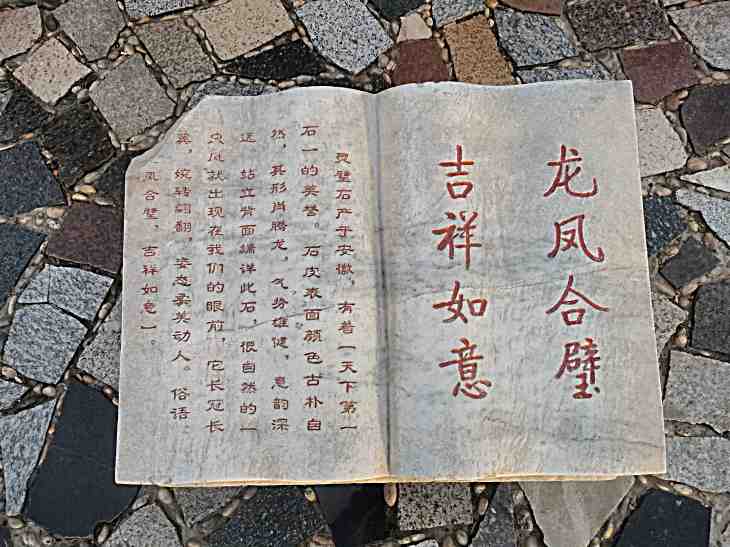 龙凤合璧
吉祥如意
灵璧石产于安徽，有着一天下第一
石一的美誉。石皮表面颜色古朴自
然，其形肖腾龙，气势雄健，意韵深
远 站立背面端详此石，很自然的一
只凤就出现在我们的眼前，它长冠长
翼，婉转翩翩，姿态柔美动人。俗语
凤合璧，吉祥如意一。